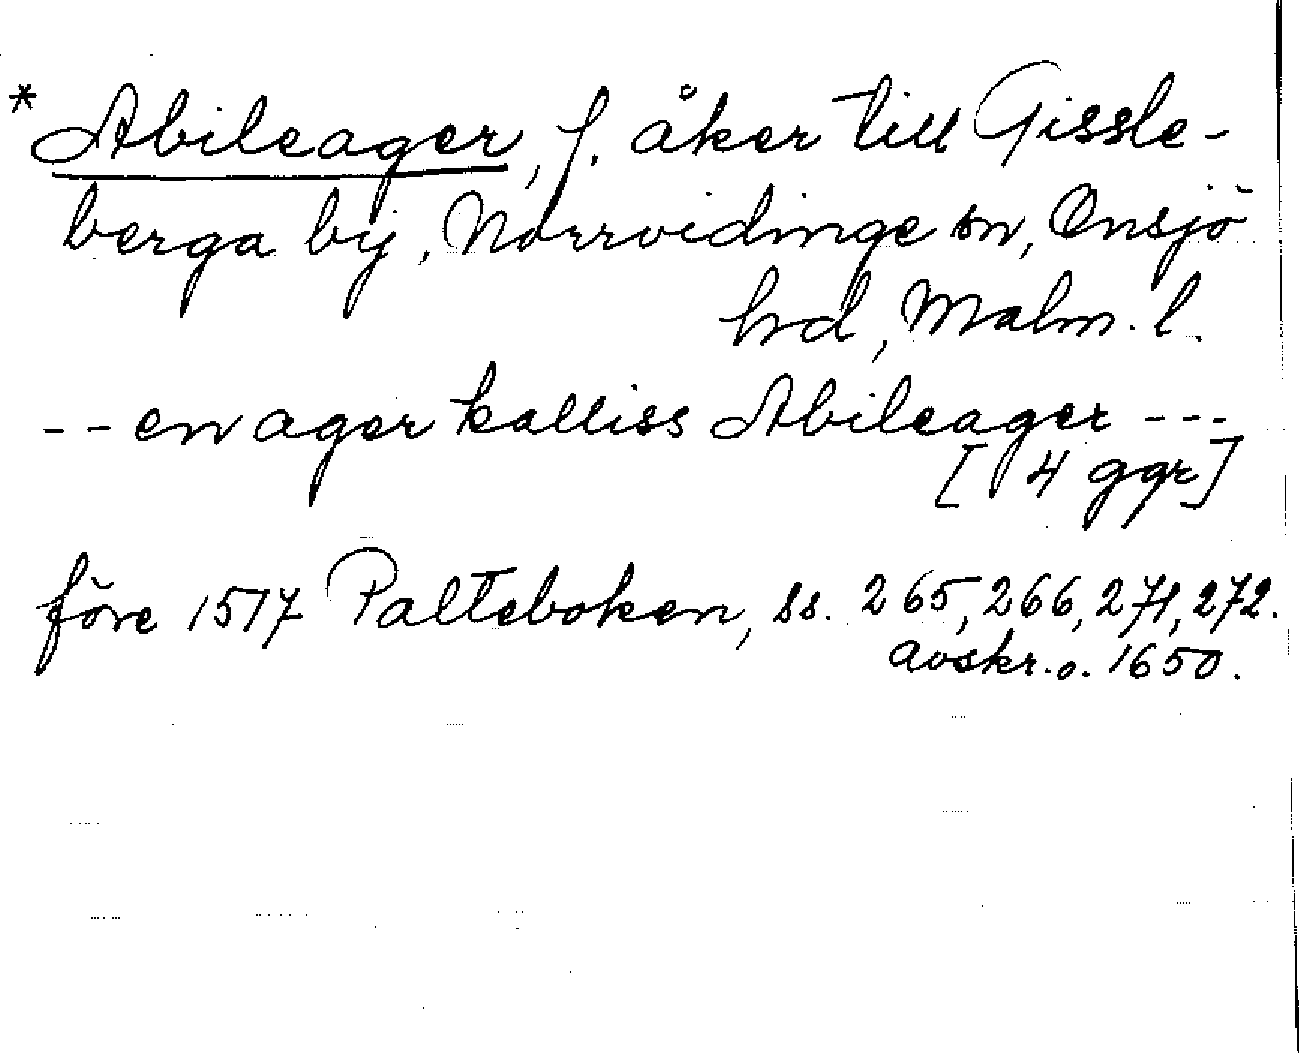 * Abileager, f. åker till Gissle-
berga by, Norrvidinge sn, Onsjö
hd, Malm. l.
-- en ager kalliss Abileager ---
[4 ggr]
före 1517 Palteboken, ss. 265, 266, 271, 272.
avskr. o. 1650.